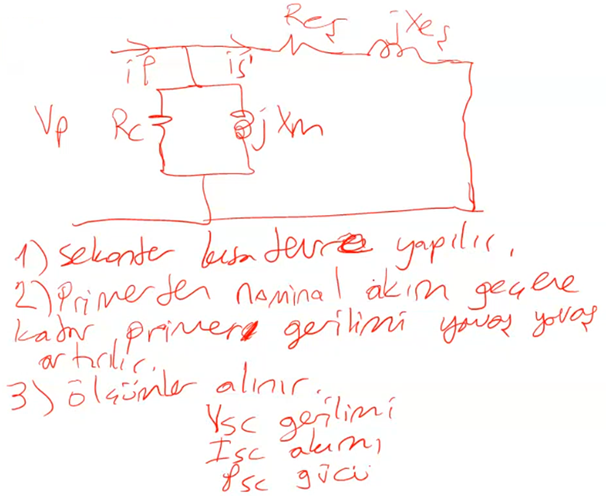 Reş jXeş
ip is'
Vp Rc jXm
1) Sekonder kısa devre yapılır.
2) Primerden nominal akım geçene
kadar primer gerilimi yavaş yavaş
artırılır.
3) Ölçümler alınır.
Vsc gerilimi
Isc akımı
Psc gücü